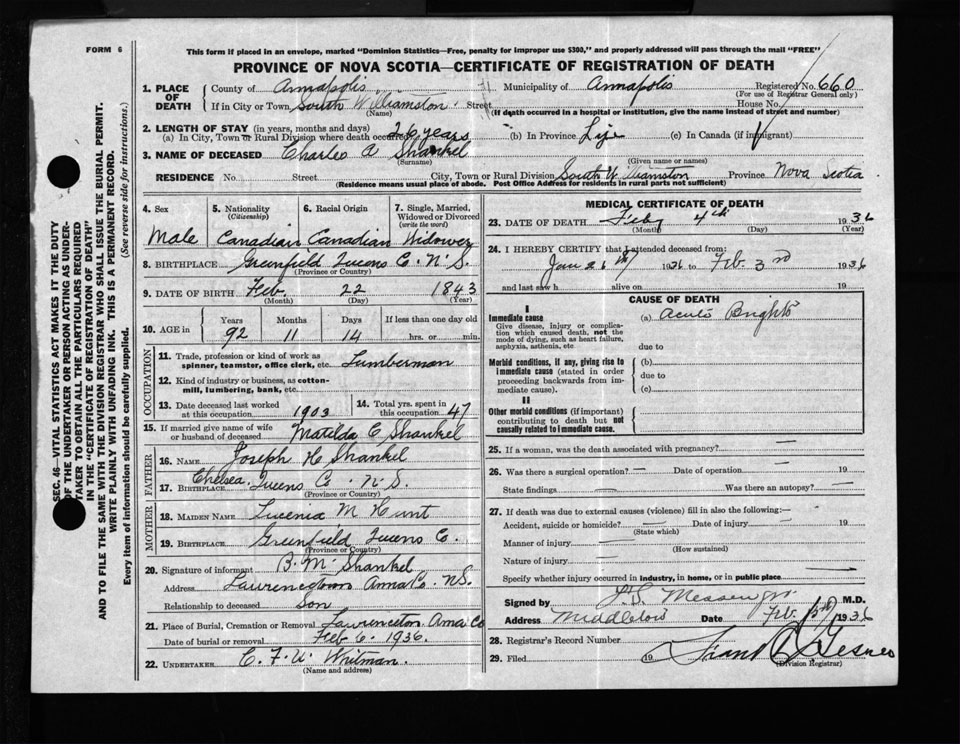 FORM 6
This form if placed in an envelope, marked "Dominion Statistics—Free, penalty for improper use $300," and properly addressed will pass through the mail "FREE"
PROVINCE OF NOVA SCOTIA—CERTIFICATE OF REGISTRATION OF DEATH
SEC. 46—VITAL STATISTICS ACT MAKES IT THE DUTY
OF THE UNDERTAKER OR PERSON ACTING AS UNDER-
TAKER TO OBTAIN ALL THE PARTICULARS REQUIRED
IN THE "CERTIFICATE OF REGISTRATION OF DEATH"
AND TO FILE THE SAME WITH THE DIVISION REGISTRAR WHO SHALL ISSUE THE BURIAL PERMIT.
WRITE PLAINLY WITH UNFADING INK. THIS IS A PERMANENT RECORD.
Every item of information should be carefully supplied. (See reverse side for instructions.)
1. PLACE OF DEATH County of Annapolis Municipality of Annapolis Registered No. 660
(For use of Registrar General only)
If in City or Town South Williamston Street House No.
(Name) (If death occurred in a hospital or institution, give the name instead of street and number)
2. LENGTH OF STAY (in years, months and days)
(a) In City, Town or Rural Division where death occurred 26 years (b) In Province Life (c) In Canada (if immigrant)
3. NAME OF DECEASED Charles A Shankel
(Surname) (Given name or names)
RESIDENCE No. Street City, Town or Rural Division South Williamston Province Nova Scotia
(Residence means usual place of abode. Post Office Address for residents in rural parts not sufficient)
4. Sex 5. Nationality (Citizenship) 6. Racial Origin 7. Single, Married, Widowed or Divorced (write the word)
Male Canadian Canadian Widower
8. BIRTHPLACE Greenfield Queens Co. N.S.
(Province or Country)
9. DATE OF BIRTH Feb. 22 1843
(Month) (Day) (Year)
10. AGE in Years Months Days If less than one day old
92 11 14 hrs. or min.
OCCUPATION
11. Trade, profession or kind of work as spinner, teamster, office clerk, etc. Lumberman
12. Kind of industry or business, as cotton-mill, lumbering, bank, etc.
13. Date deceased last worked at this occupation 1903 14. Total yrs. spent in this occupation 47
15. If married give name of wife or husband of deceased Matilda C Shankel
FATHER
16. NAME Joseph H Shankel
17. BIRTHPLACE Chelsea Queens Co. N.S.
(Province or Country)
MOTHER
18. MAIDEN NAME Lucenia M Hunt
19. BIRTHPLACE Greenfield Queens Co.
(Province or Country)
20. Signature of informant B. M. Shankel
Address Lawrencetown Anna Co. N.S.
Relationship to deceased Son
21. Place of Burial, Cremation or Removal Lawrencetown Anna Co
Date of burial or removal Feb 6. 1936.
22. UNDERTAKER C. F. W. Whitman.
(Name and address)
MEDICAL CERTIFICATE OF DEATH
23. DATE OF DEATH Feby 4th 1936
(Month) (Day) (Year)
24. I HEREBY CERTIFY that I attended deceased from:
Jan 26th 1936 to Feb. 3rd 1936
and last saw h alive on 19
CAUSE OF DEATH
I
Immediate cause (a) Acute Brights
Give disease, injury or complication which caused death, not the mode of dying, such as heart failure, asphyxia, asthenia, etc
due to
Morbid conditions, if any, giving rise to immediate cause (stated in order proceeding backwards from immediate cause).
(b)
due to
(c)
II
Other morbid conditions (if important) contributing to death but not causally related to immediate cause.
25. If a woman, was the death associated with pregnancy? —
26. Was there a surgical operation? — Date of operation — 19
State findings — Was there an autopsy? —
27. If death was due to external causes (violence) fill in also the following:—
Accident, suicide or homicide? — Date of injury — 19
(State which)
Manner of injury —
(How sustained)
Nature of injury —
Specify whether injury occurred in industry, in home, or in public place —
Signed by J. S. Messenger M.D.
Address Middleton Date Feb. 1936
28. Registrar's Record Number
29. Filed 19 Frank C Gesner
(Division Registrar)